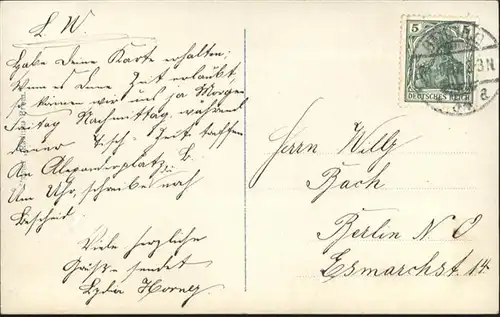 L. W.
Habe Deine Karte erhalten;
Wenn es Deine Zeit erlaubt,
so können wir uns ja Morgen
Freitag Nachmittag während
Deiner Tisch-Zeit treffen
An Alexanderplatz. B.
Um Uhr, schreibe noch
Bescheid.
Viele herzliche
Grüße sendet
Lyda
5
DEUTSCHES REICH
Herrn Willy
Bach
Berlin N O
Esmarchst. 14